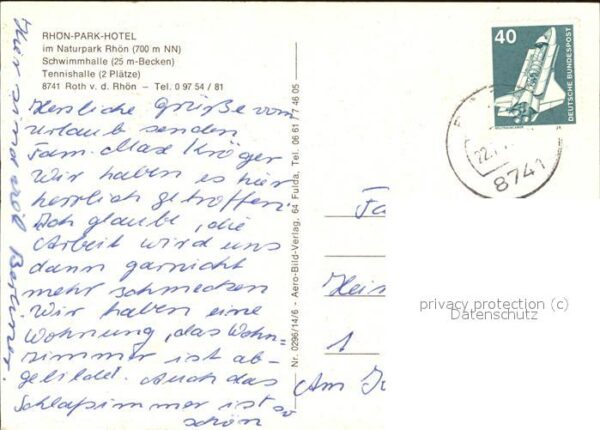 RHÖN-PARK-HOTEL
im Naturpark Rhön (700 m NN)
Schwimmhalle (25 m-Becken)
Tennishalle (2 Plätze)
8741 Roth v. d. Rhön – Tel. 0 97 54 / 81
Herzliche Grüße vom
Urlaub senden
Fam. Max Kröger
Wir haben es hier
herrlich getroffen.
Ich glaube, die
Arbeit wird uns
dann garnicht
mehr schmecken
Wir haben eine
Wohnung, das Wohn-
zimmer ist ab-
gebildet. Auch das
Schlafzimmer ist so
schön
Hier sind viel Berliner.
Nr. 0296/14/6 - Aero-Bild-Verlag, 64 Fulda, Tel. 06 61 / 7 46 05
40
DEUTSCHE BUNDESPOST
8741
Fa
Heis
1
Am
privacy protection (c)
Datenschutz